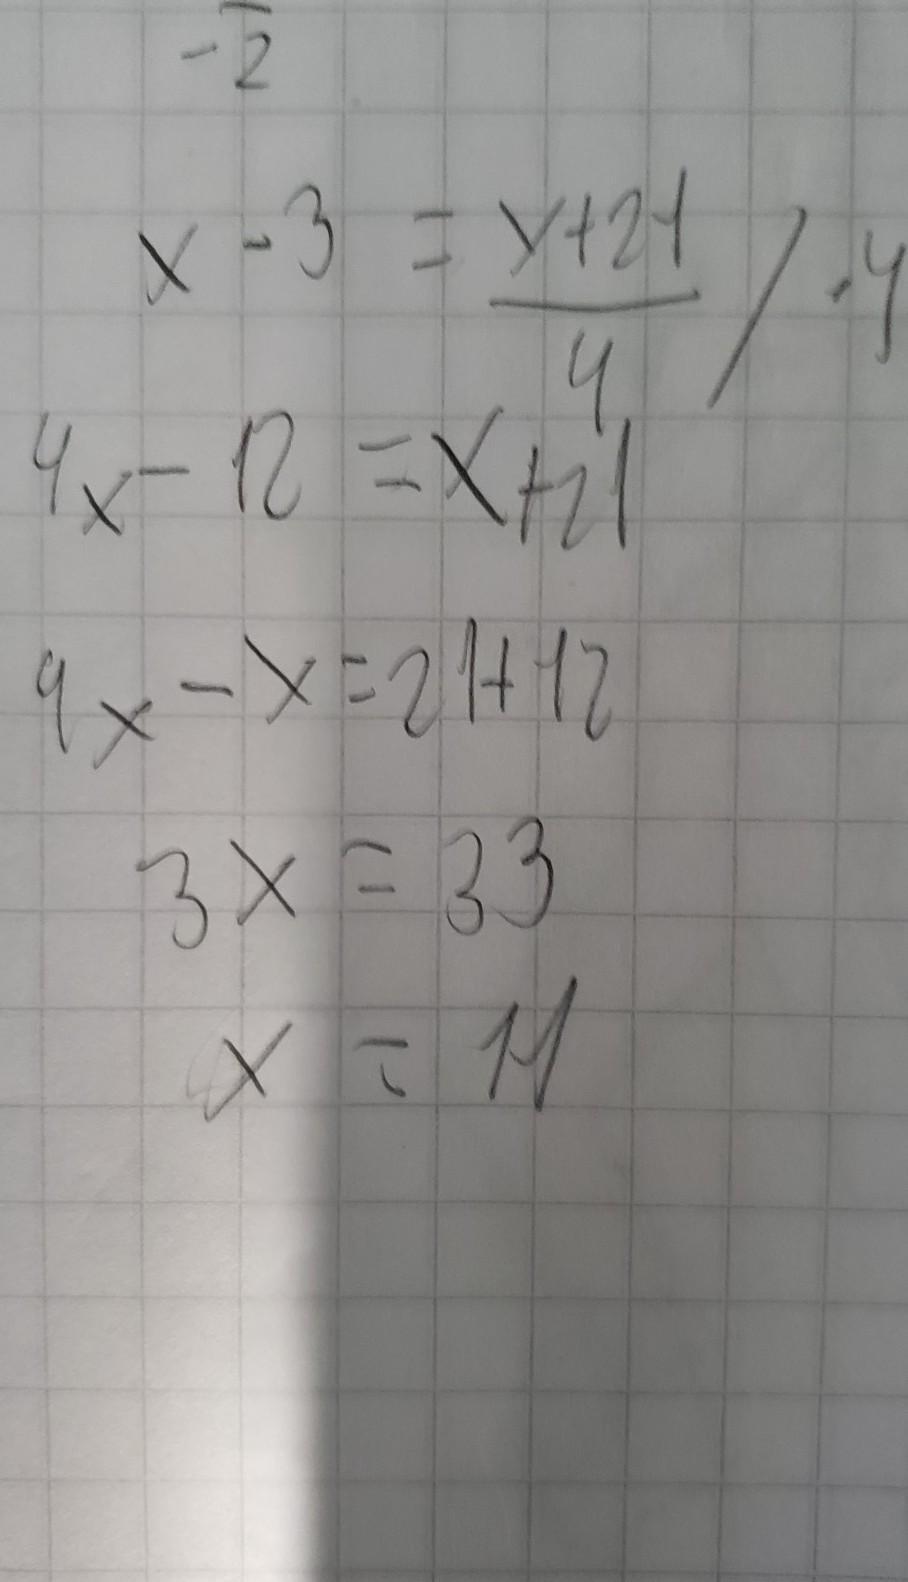 -2
x - 3 = x+21/4 / ·4
4x - 12 = x+21
4x - x = 21+12
3x = 33
x = 11